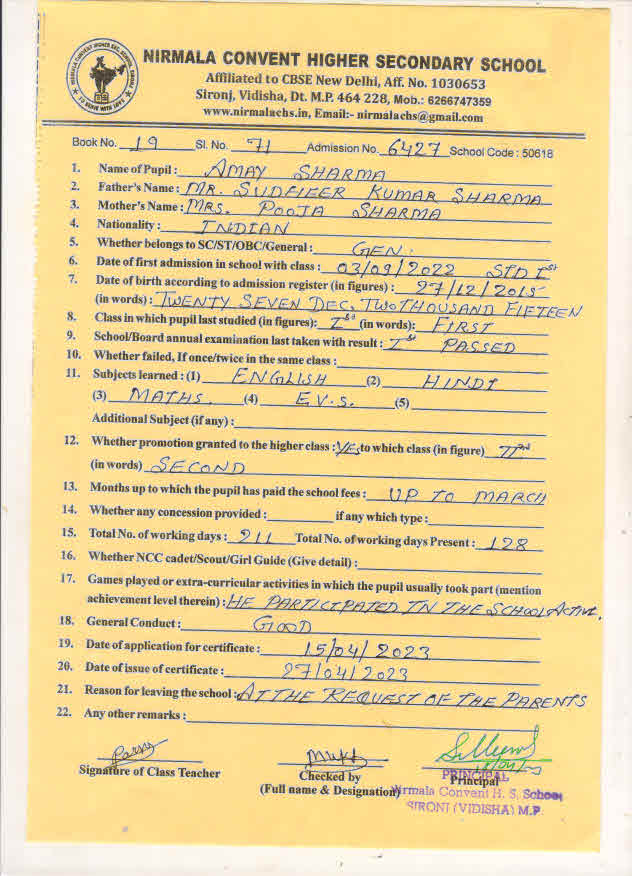 NIRMALA CONVENT HIGHER SECONDARY SCHOOL
Affiliated to CBSE New Delhi, Aff. No. 1030653
Sironj, Vidisha, Dt. M.P. 464 228, Mob.: 6266747359
www.nirmalachs.in, Email:- nirmalachs@gmail.com
Book No. 19 Sl. No. 71 Admission No. 6427 School Code : 50618
1. Name of Pupil : AMAY SHARMA
2. Father's Name : MR. SUDHEER KUMAR SHARMA
3. Mother's Name : MRS. POOJA SHARMA
4. Nationality : INDIAN
5. Whether belongs to SC/ST/OBC/General : GEN.
6. Date of first admission in school with class : 03/09/2022 STD Ist
7. Date of birth according to admission register (in figures) : 27/12/2015
(in words) : TWENTY SEVEN DEC, TWO THOUSAND FIFTEEN
8. Class in which pupil last studied (in figures): Ist (in words): FIRST
9. School/Board annual examination last taken with result : Ist PASSED
10. Whether failed, If once/twice in the same class :
11. Subjects learned : (1) ENGLISH (2) HINDI
(3) MATHS. (4) E.V.S. (5)
Additional Subject (if any) :
12. Whether promotion granted to the higher class : YES to which class (in figure) IInd
(in words) SECOND
13. Months up to which the pupil has paid the school fees : UP TO MARCH
14. Whether any concession provided : if any which type :
15. Total No. of working days : 211 Total No. of working days Present : 128
16. Whether NCC cadet/Scout/Girl Guide (Give detail) :
17. Games played or extra-curricular activities in which the pupil usually took part (mention
achievement level therein) : HE PARTICIPATED IN THE SCHOOL ACTIVE.
18. General Conduct : GOOD
19. Date of application for certificate : 15/04/2023
20. Date of issue of certificate : 27/04/2023
21. Reason for leaving the school : AT THE REQUEST OF THE PARENTS
22. Any other remarks :
Signature of Class Teacher Checked by Principal
(Full name & Designation)
PRINCIPAL
Nirmala Convent H. S. School
SIRONJ (VIDISHA) M.P.